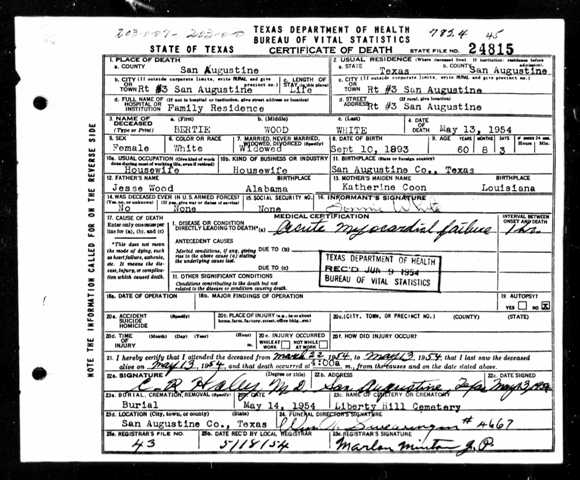 TEXAS DEPARTMENT OF HEALTH
BUREAU OF VITAL STATISTICS
STATE OF TEXAS
CERTIFICATE OF DEATH
STATE FILE NO. 24815
1. PLACE OF DEATH
a. COUNTY San Augustine
2. USUAL RESIDENCE (Where deceased lived. If institution: residence before admission)
a. STATE Texas b. COUNTY San Augustine
b. CITY (If outside corporate limits, write RURAL and give
OR TOWN Rt #3 San Augustine
c. LENGTH OF STAY Life
c. CITY (If outside corporate limits, write RURAL and give
OR TOWN Rt #3 San Augustine
d. FULL NAME OF (If not in hospital or institution, give street address or location)
HOSPITAL OR INSTITUTION Family Residence
d. STREET ADDRESS (If rural, give location)
Rt #3 San Augustine
3. NAME OF DECEASED (Type or Print)
a. (First) BERTIE b. (Middle) WOOD c. (Last) WHITE
4. DATE OF DEATH May 13, 1954
5. SEX Female
6. COLOR OR RACE White
7. MARRIED, NEVER MARRIED, WIDOWED, DIVORCED (Specify) Widowed
8. DATE OF BIRTH Sept 10, 1893
9. AGE YEARS 60 MONTHS 8 DAYS 3
10a. USUAL OCCUPATION (Give kind of work done during most of working life, even if retired)
Housewife
10b. KIND OF BUSINESS OR INDUSTRY
Housewife
11. BIRTHPLACE (State or foreign country)
San Augustine Co., Texas
12. FATHER'S NAME BIRTHPLACE
Jesse Wood Alabama
13. MOTHER'S MAIDEN NAME BIRTHPLACE
Katherine Coon Louisiana
14. WAS DECEASED EVER IN U.S. ARMED FORCES?
No None
15. SOCIAL SECURITY NO.
None
16. INFORMANT'S SIGNATURE
White
17. CAUSE OF DEATH
Enter only one cause per line for (a), (b), and (c)
MEDICAL CERTIFICATION
I. DISEASE OR CONDITION DIRECTLY LEADING TO DEATH (a) Acute myocardial failure
INTERVAL BETWEEN ONSET AND DEATH
1 hr.
* This does not mean the mode of dying, such as heart failure, asthenia, etc. It means the disease, injury, or complication which caused death.
ANTECEDENT CAUSES
Morbid conditions, if any, giving rise to the above cause (a) stating the underlying cause last.
DUE TO (b)
DUE TO (c)
II. OTHER SIGNIFICANT CONDITIONS
Conditions contributing to the death but not related to the disease or condition causing death.
TEXAS DEPARTMENT OF HEALTH
REC'D JUN 9 1954
BUREAU OF VITAL STATISTICS
18a. DATE OF OPERATION
18b. MAJOR FINDINGS OF OPERATION
19. AUTOPSY?
YES NO X
20a. ACCIDENT SUICIDE HOMICIDE (Specify)
20b. PLACE OF INJURY (e.g., in or about home, farm, factory, street, office bldg., etc.)
20c. (CITY, TOWN, OR PRECINCT NO.) (COUNTY) (STATE)
20d. TIME OF INJURY (Month) (Day) (Year) (Hour)
20e. INJURY OCCURRED
WHILE AT WORK NOT WHILE AT WORK
20f. HOW DID INJURY OCCUR?
21. I hereby certify that I attended the deceased from March 22 1954, to May 13, 1954, that I last saw the deceased
alive on May 13, 1954, and that death occurred at 4:00a m.
22a. SIGNATURE (Degree or title) 22b. ADDRESS 22c. DATE SIGNED
M.D. San Augustine, Texas
23a. BURIAL, CREMATION, REMOVAL (Specify)
Burial
23b. DATE
May 14, 1954
23c. NAME OF CEMETERY OR CREMATORY
Liberty Hill Cemetery
23d. LOCATION (City, town, or county) (State)
San Augustine Co., Texas
24. FUNERAL DIRECTOR'S SIGNATURE
#4667
25a. REGISTRAR'S FILE NO.
43
25b. DATE REC'D BY LOCAL REGISTRAR
5/18/54
25c. REGISTRAR'S SIGNATURE
Marlon Minton J.P.
NOTE THE INFORMATION CALLED FOR ON THE REVERSE SIDE